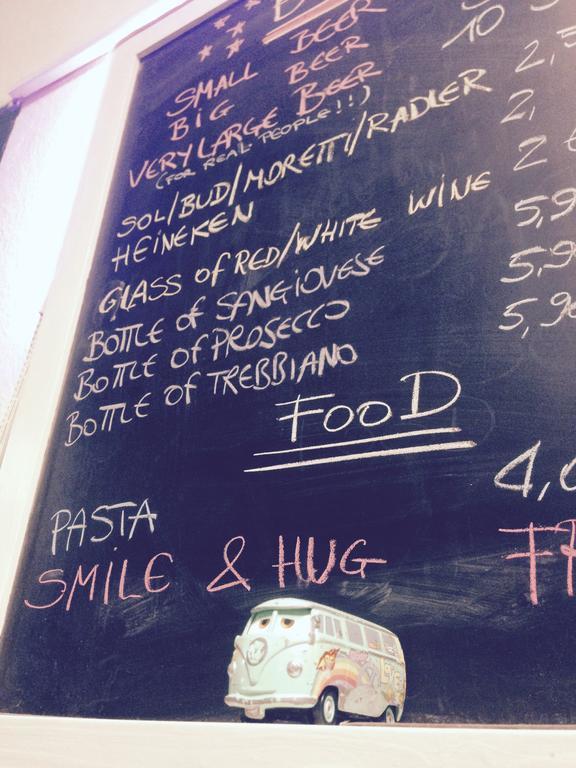 SMALL BEER
BIG BEER
VERY LARGE BEER 10
(FOR REAL PEOPLE!!)
SOL/BUD/MORETTI/RADLER 2,5
HEINEKEN 2,
GLASS of RED/WHITE WINE 2 €
BOTTLE of SANGIOVESE 5,9
BOTTLE OF PROSECCO 5,9
BOTTLE OF TREBBIANO 5,90
FOOD
PASTA 4,
SMILE & HUG